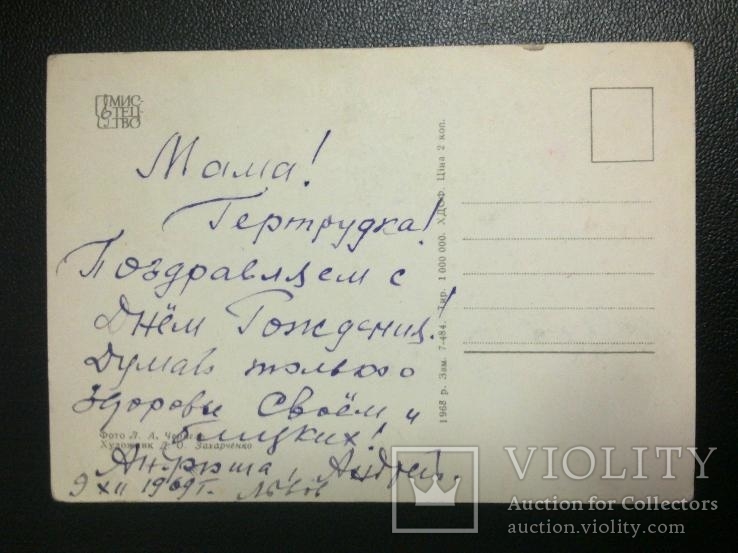 МИС-
ТЕЦ-
ТВО
Мама!
Гертрудка!
Поздравляем с
Днём Рождения!
Думав только о
Здоровье Своём и
близких!
Фото Л. А.
Художник Д. О. Захарченко
Андрюша, Андрей.
9 XII 1969г. Львов
1968 р. Зам. 7-484. Тир. 1 000 000. ХДОФ. Ціна 2 коп.
VIOLITY
Auction for Collectors
auction.violity.com